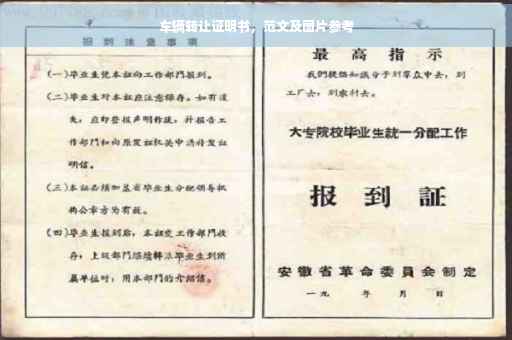 车辆转让证明书，范文及图片参考
报到注意事项
(一)毕业生凭本证向工作部門报到。
(二)毕业生对本证应注意保存。如有遗
失，应即登报声明作废，并报告工
作部門和向原发证机关申請补发证
明信。
(三)本证必须加盖省毕业生分配領导机
构公章方为有效。
(四)毕业生报到后，本证交工作部門收
存；上級部門继續轉派毕业生到所
属单位时，用本部門的介紹信。
最高指示
我們提倡知識分子到羣众中去，到
工厂去，到农村去。
大专院校毕业生統一分配工作
报到証
安徽省革命委員会制定
一九 年 月 日